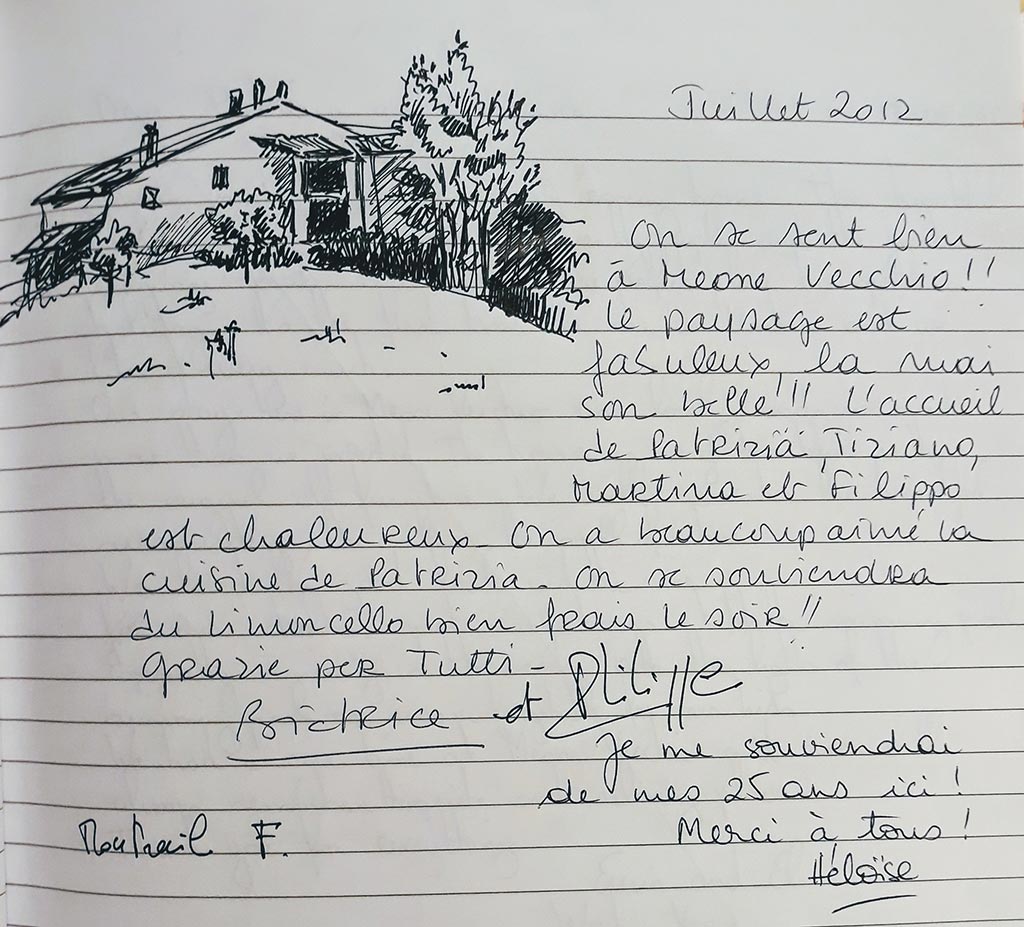 Juillet 2012
On se sent bien
à Meone Vecchio!!
le paysage est
fabuleux, la mai
son belle!!! L'accueil
de Patrizia, Tiziano,
Martina et Filippo
est chaleureux. On a beaucoup aimé la
cuisine de Patrizia. On se souviendra
du limoncello bien frais le soir!!
Grazie per Tutti -
Béatrice et Philippe
Je me souviendrai
de mes 25 ans ici!
Merci à tous!
Héloïse
F.